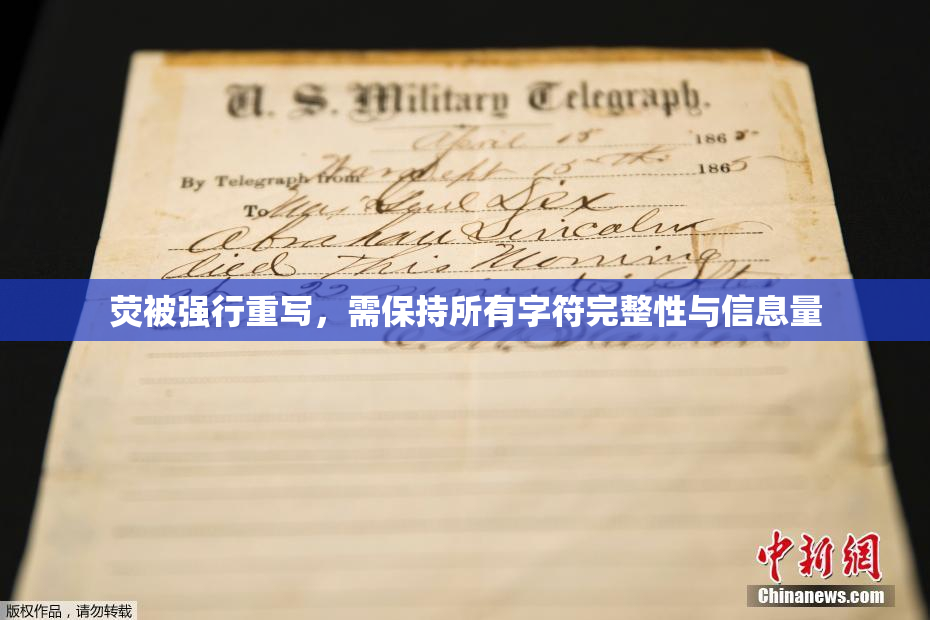 U. S. Military Telegraph.
April 15 1865
By Telegraph from War Dept 15th 1865
To Maj Genl Dix
Abraham Lincoln
died This Morning
at 22 minutes after
荧被强行重写，需保持所有字符完整性与信息量
E. M. Stanton
中新網
Chinanews.com
版权作品，请勿转载